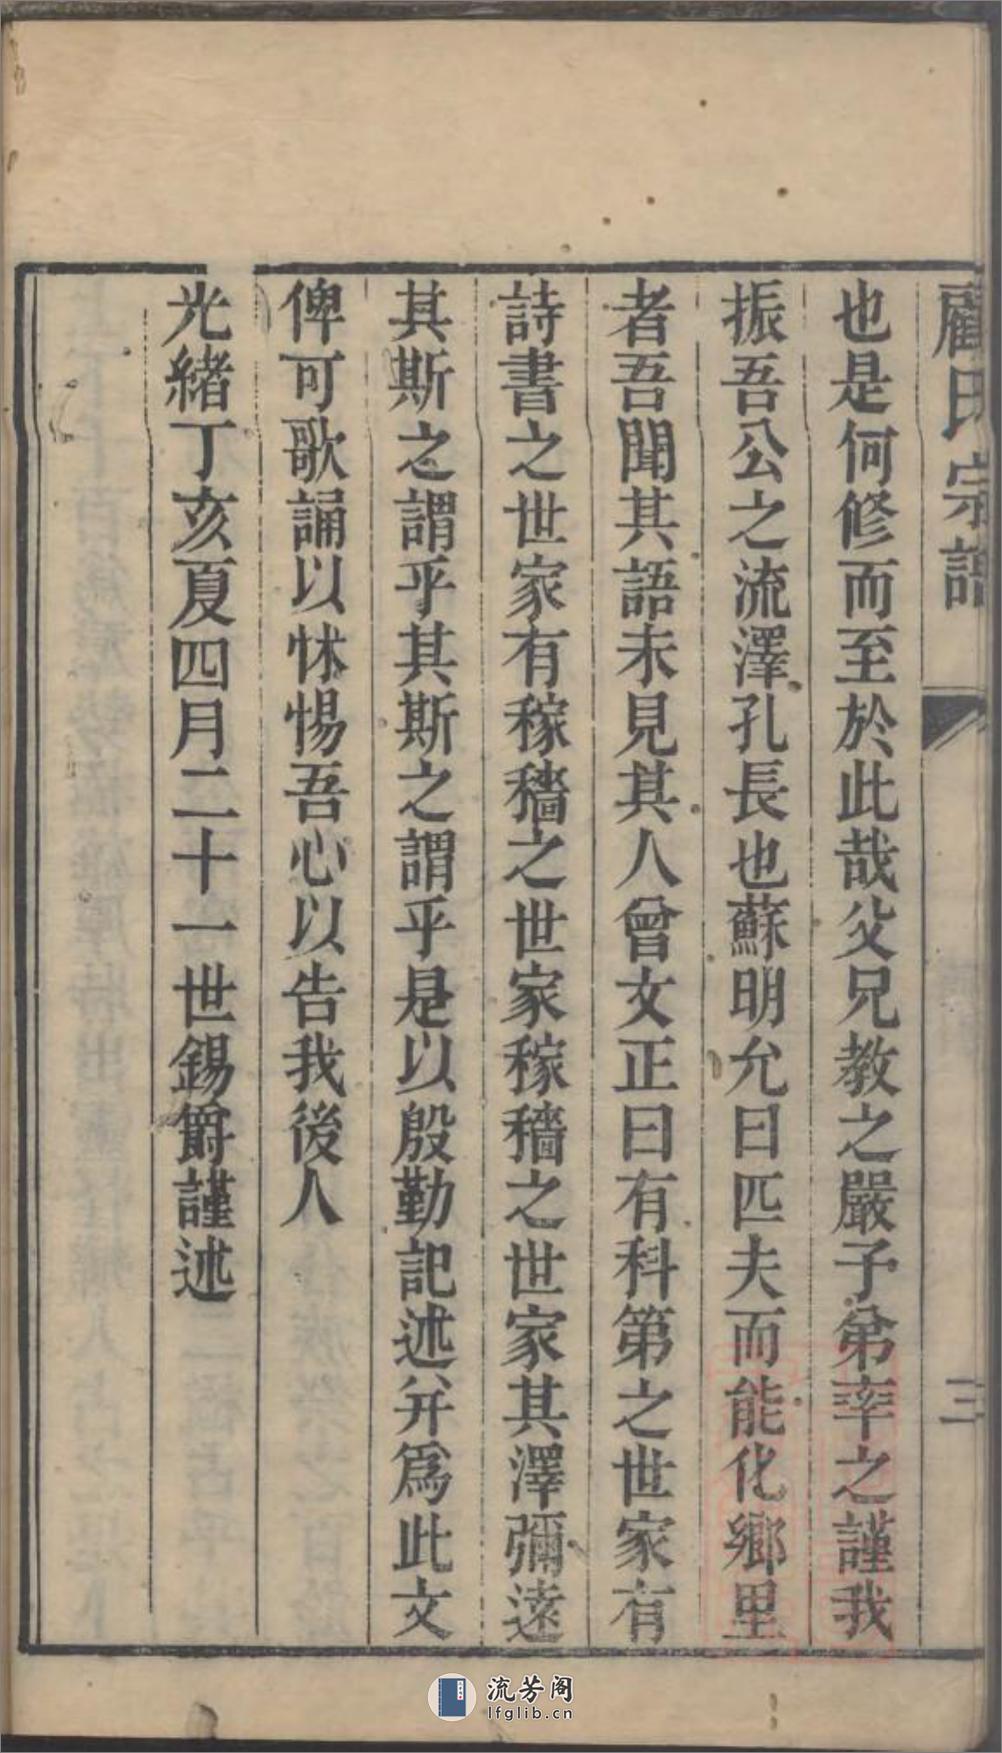 顧氏宗譜
三
也是何修而至於此哉父兄教之嚴子弟率之謹我
振吾公之流澤孔長也蘇明允曰匹夫而能化鄉里
者吾聞其語未見其人曾文正曰有科第之世家有
詩書之世家有稼穡之世家稼穡之世家其澤彌遠
其斯之謂乎其斯之謂乎是以殷勤記述并爲此文
俾可歌誦以怵惕吾心以告我後人
光緒丁亥夏四月二十一世錫爵謹述
流芳阁
lfglib.cn